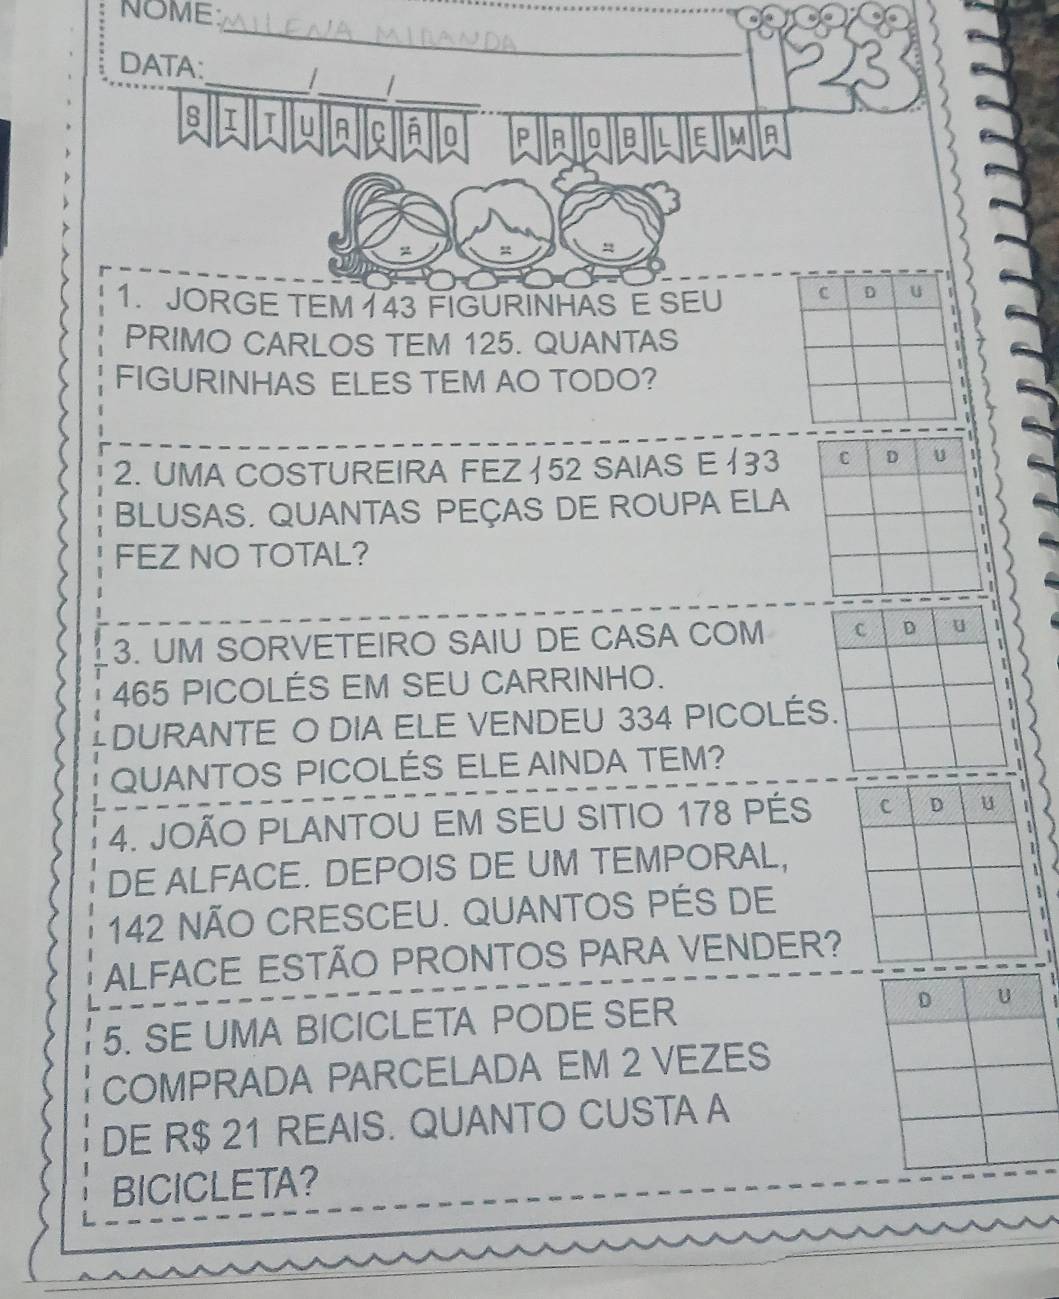 NOME: MILENA MIRANDA
DATA: ___/___/___
123
SITUAÇÃO PROBLEMA
1. JORGE TEM 143 FIGURINHAS E SEU
PRIMO CARLOS TEM 125. QUANTAS
FIGURINHAS ELES TEM AO TODO?
C D U
2. UMA COSTUREIRA FEZ 152 SAIAS E 133
BLUSAS. QUANTAS PEÇAS DE ROUPA ELA
FEZ NO TOTAL?
C D U
3. UM SORVETEIRO SAIU DE CASA COM
465 PICOLÉS EM SEU CARRINHO.
DURANTE O DIA ELE VENDEU 334 PICOLÉS.
QUANTOS PICOLÉS ELE AINDA TEM?
C D U
4. JOÃO PLANTOU EM SEU SITIO 178 PÉS
DE ALFACE. DEPOIS DE UM TEMPORAL,
142 NÃO CRESCEU. QUANTOS PÉS DE
ALFACE ESTÃO PRONTOS PARA VENDER?
C D U
5. SE UMA BICICLETA PODE SER
COMPRADA PARCELADA EM 2 VEZES
DE R$ 21 REAIS. QUANTO CUSTA A
BICICLETA?
D U